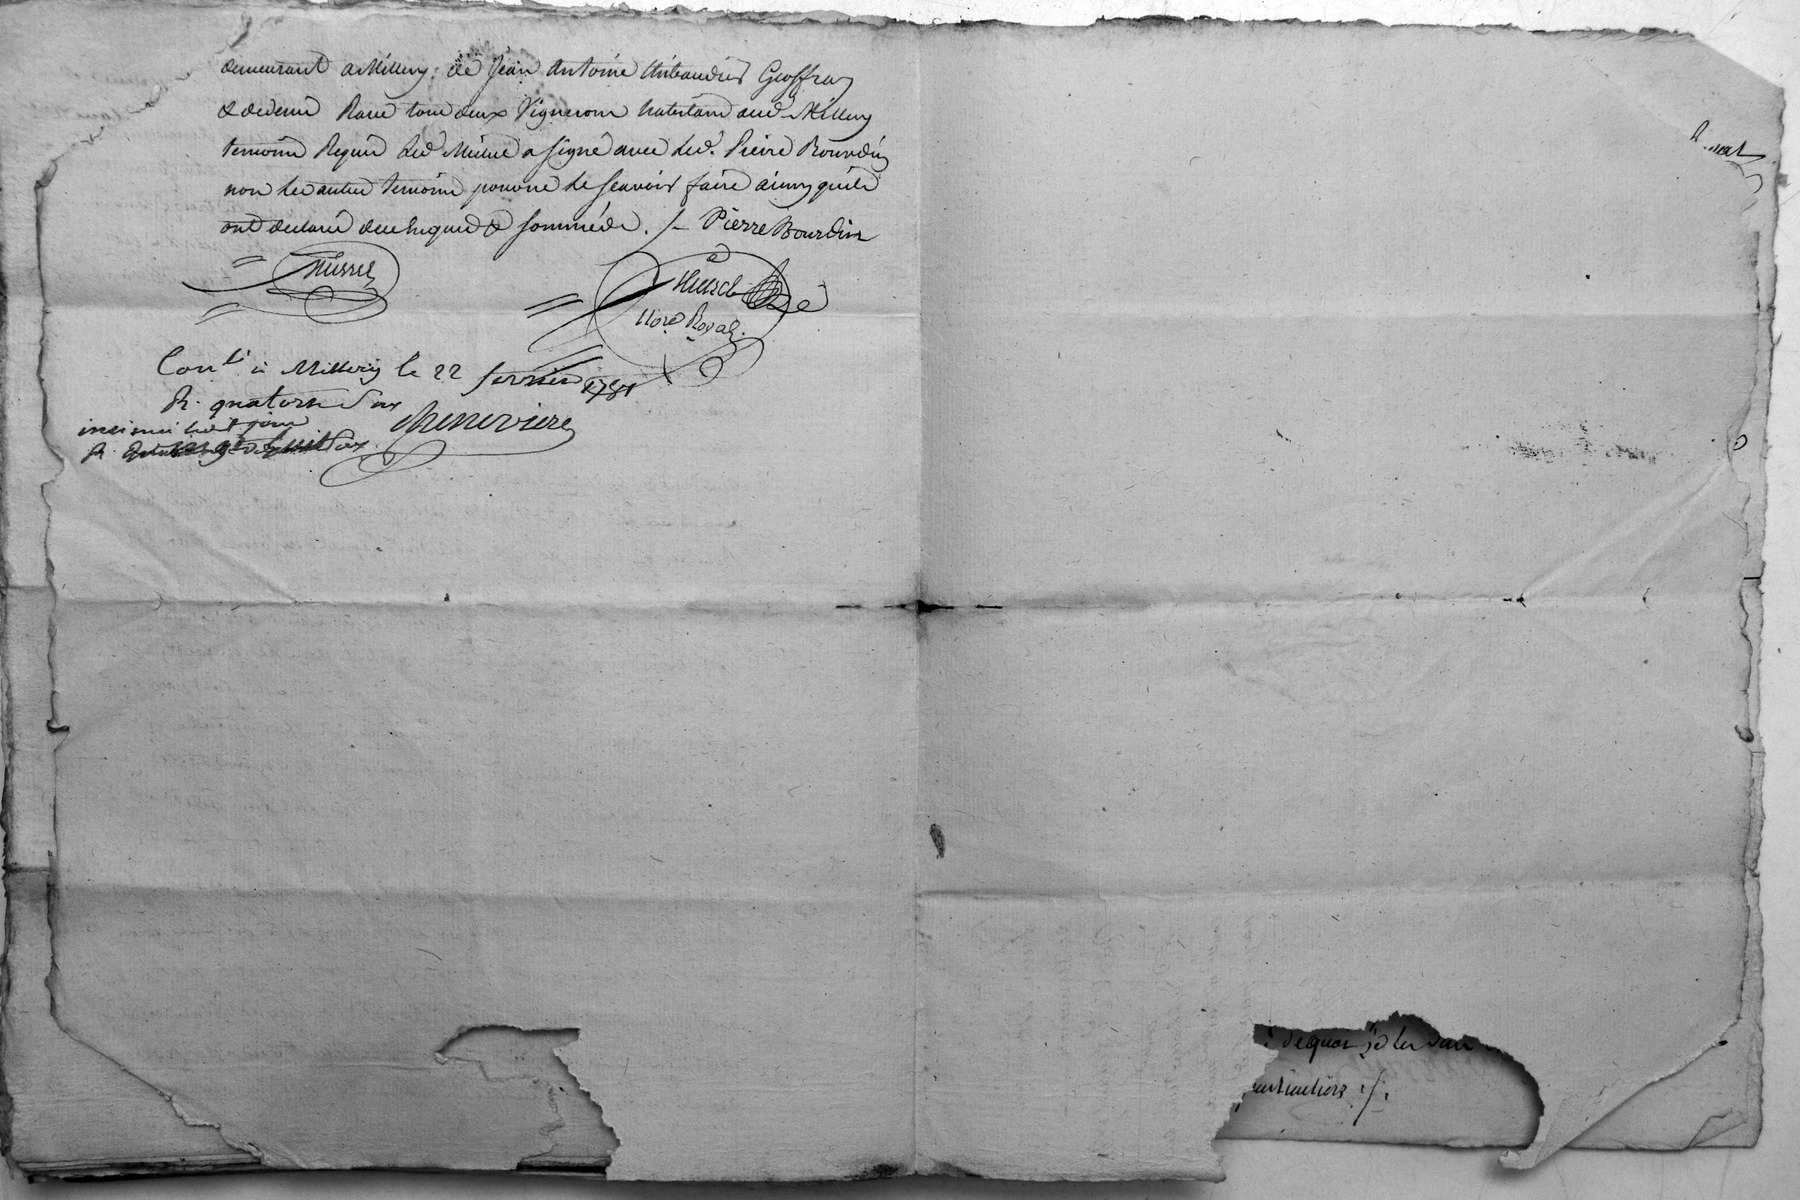 demeurant a Millery, de Jean Antoine Thibaudier Geoffray
& de denis Rave tous deux Vignerons habitans aud. Millery
temoins Requis led. Missié a signé avec led. Pierre Bourdin
non les autres temoins pour ne le scavoir faire ainsy quils
ont declaré de ce enquis & sommés. /- Pierre Bourdin
Nore Royal.
Conlé à Millery le 22 fevrier 1781
R. quatorse sous
insinué led. jour
R. huit sous
Chenevière
de quoi
particuliers ./.